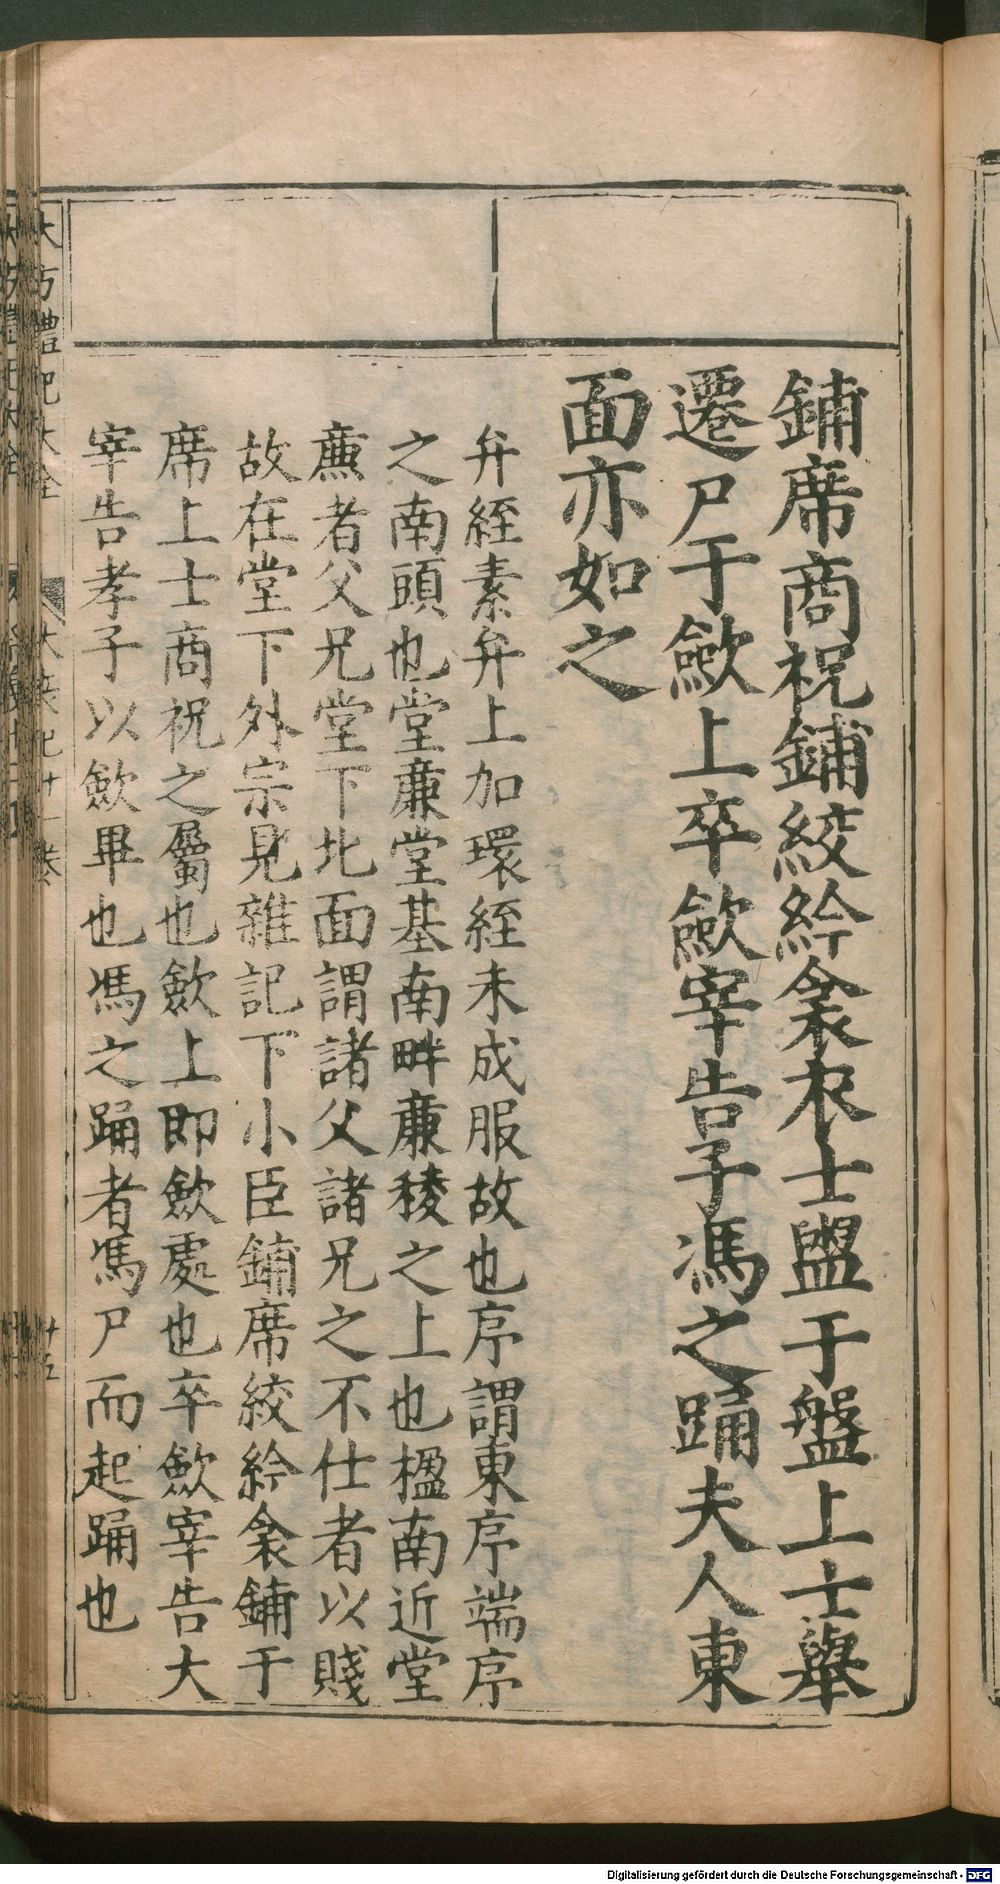 鋪席商祝鋪絞紟衾衣士盥于盤上士舉
遷尸于歛上卒歛宰告子馮之踊夫人東
面亦如之
弁絰素弁上加環絰未成服故也序謂東序端序
之南頭也堂廉堂基南畔廉稜之上也楹南近堂
廉者父兄堂下北面謂諸父諸兄之不仕者以賤
故在堂下外宗見雜記下小臣鋪席絞紟衾鋪于
席上士商祝之屬也歛上即歛處也卒歛宰告大
宰告孝子以歛畢也馮之踊者馮尸而起踊也
大方禮記大全 大喪記廿一卷 廿五
Digitalisierung gefördert durch die Deutsche Forschungsgemeinschaft - DFG